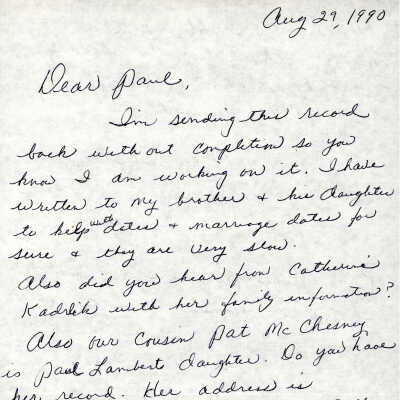 Aug 29, 1990
Dear Paul,
I'm sending this record
back with out completion so you
know I am working on it. I have
written to my brother & his daughter
to help with dates & marriage dates for
sure & they are very slow.
Also did you hear from Catherine
Kadrlik with her family information?
Also our cousin Pat McChesney
is Paul Lamberts daughter. Do you have
her record. Her address is